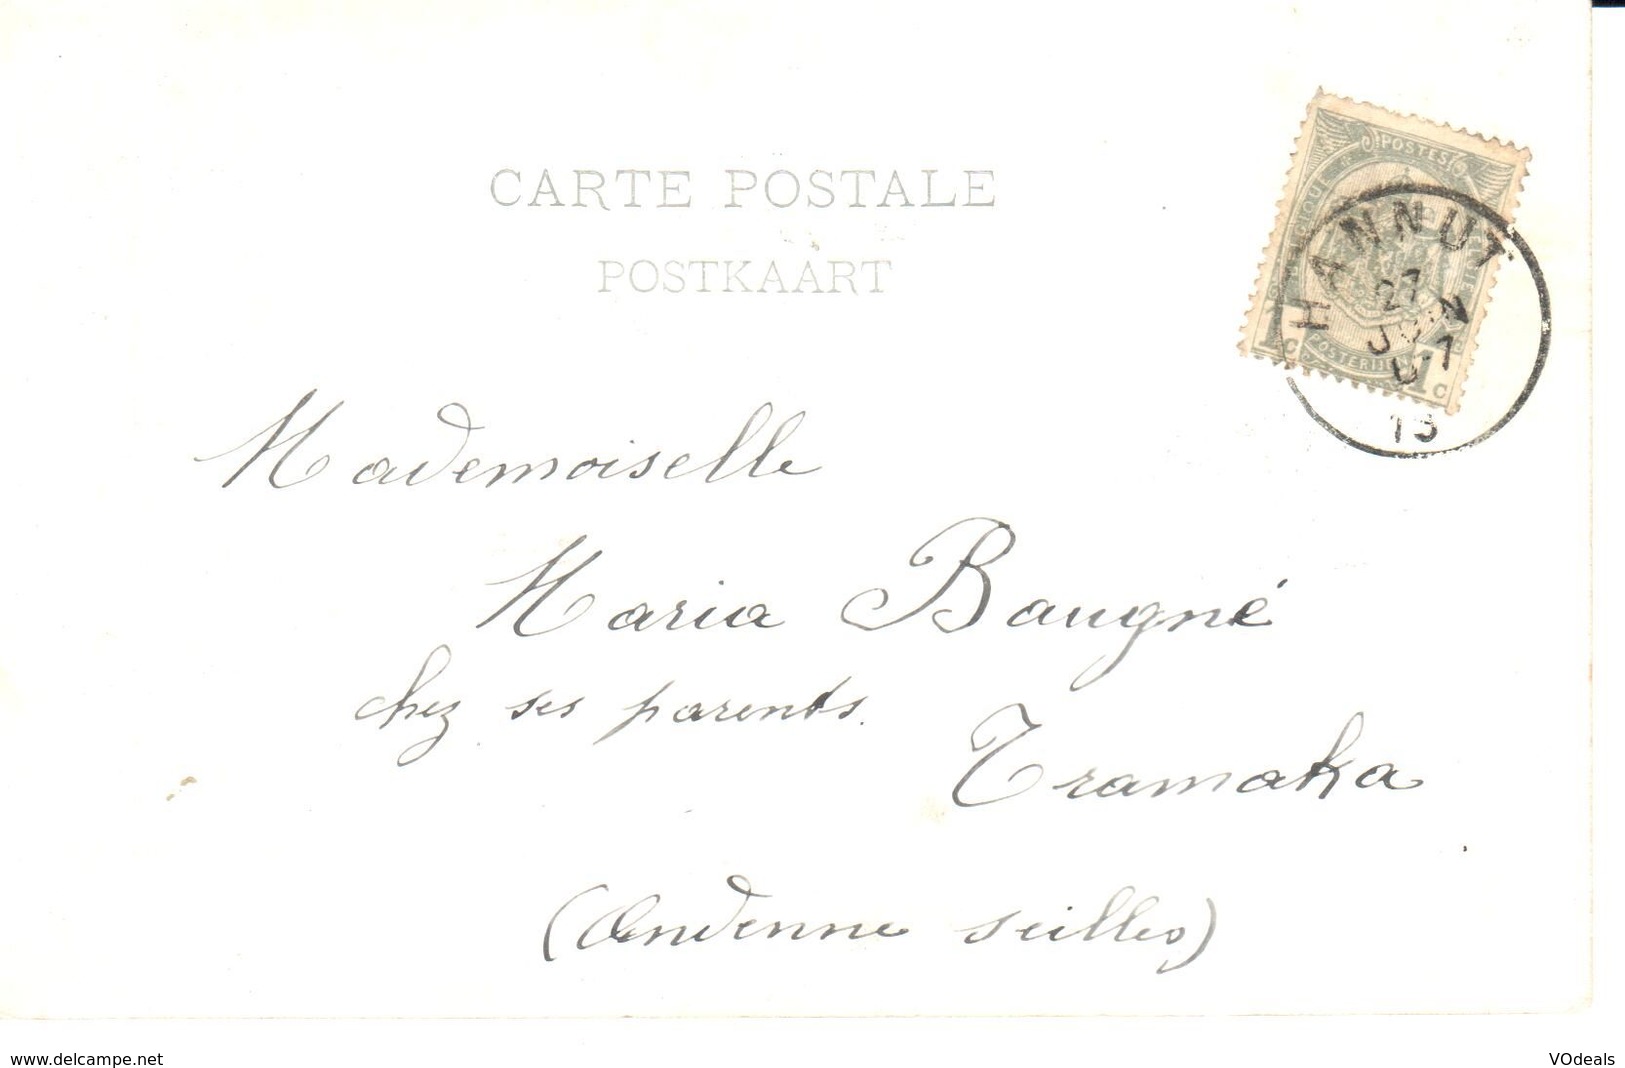 CARTE POSTALE
POSTKAART
POSTES
HANNUT
27
JUIN
01
POSTERIJEN
1 C
1 C
Mademoiselle
Maria Baugné
chez ses parents.
Tramaka
(Andenne seilles)
www.delcampe.net
VOdeals